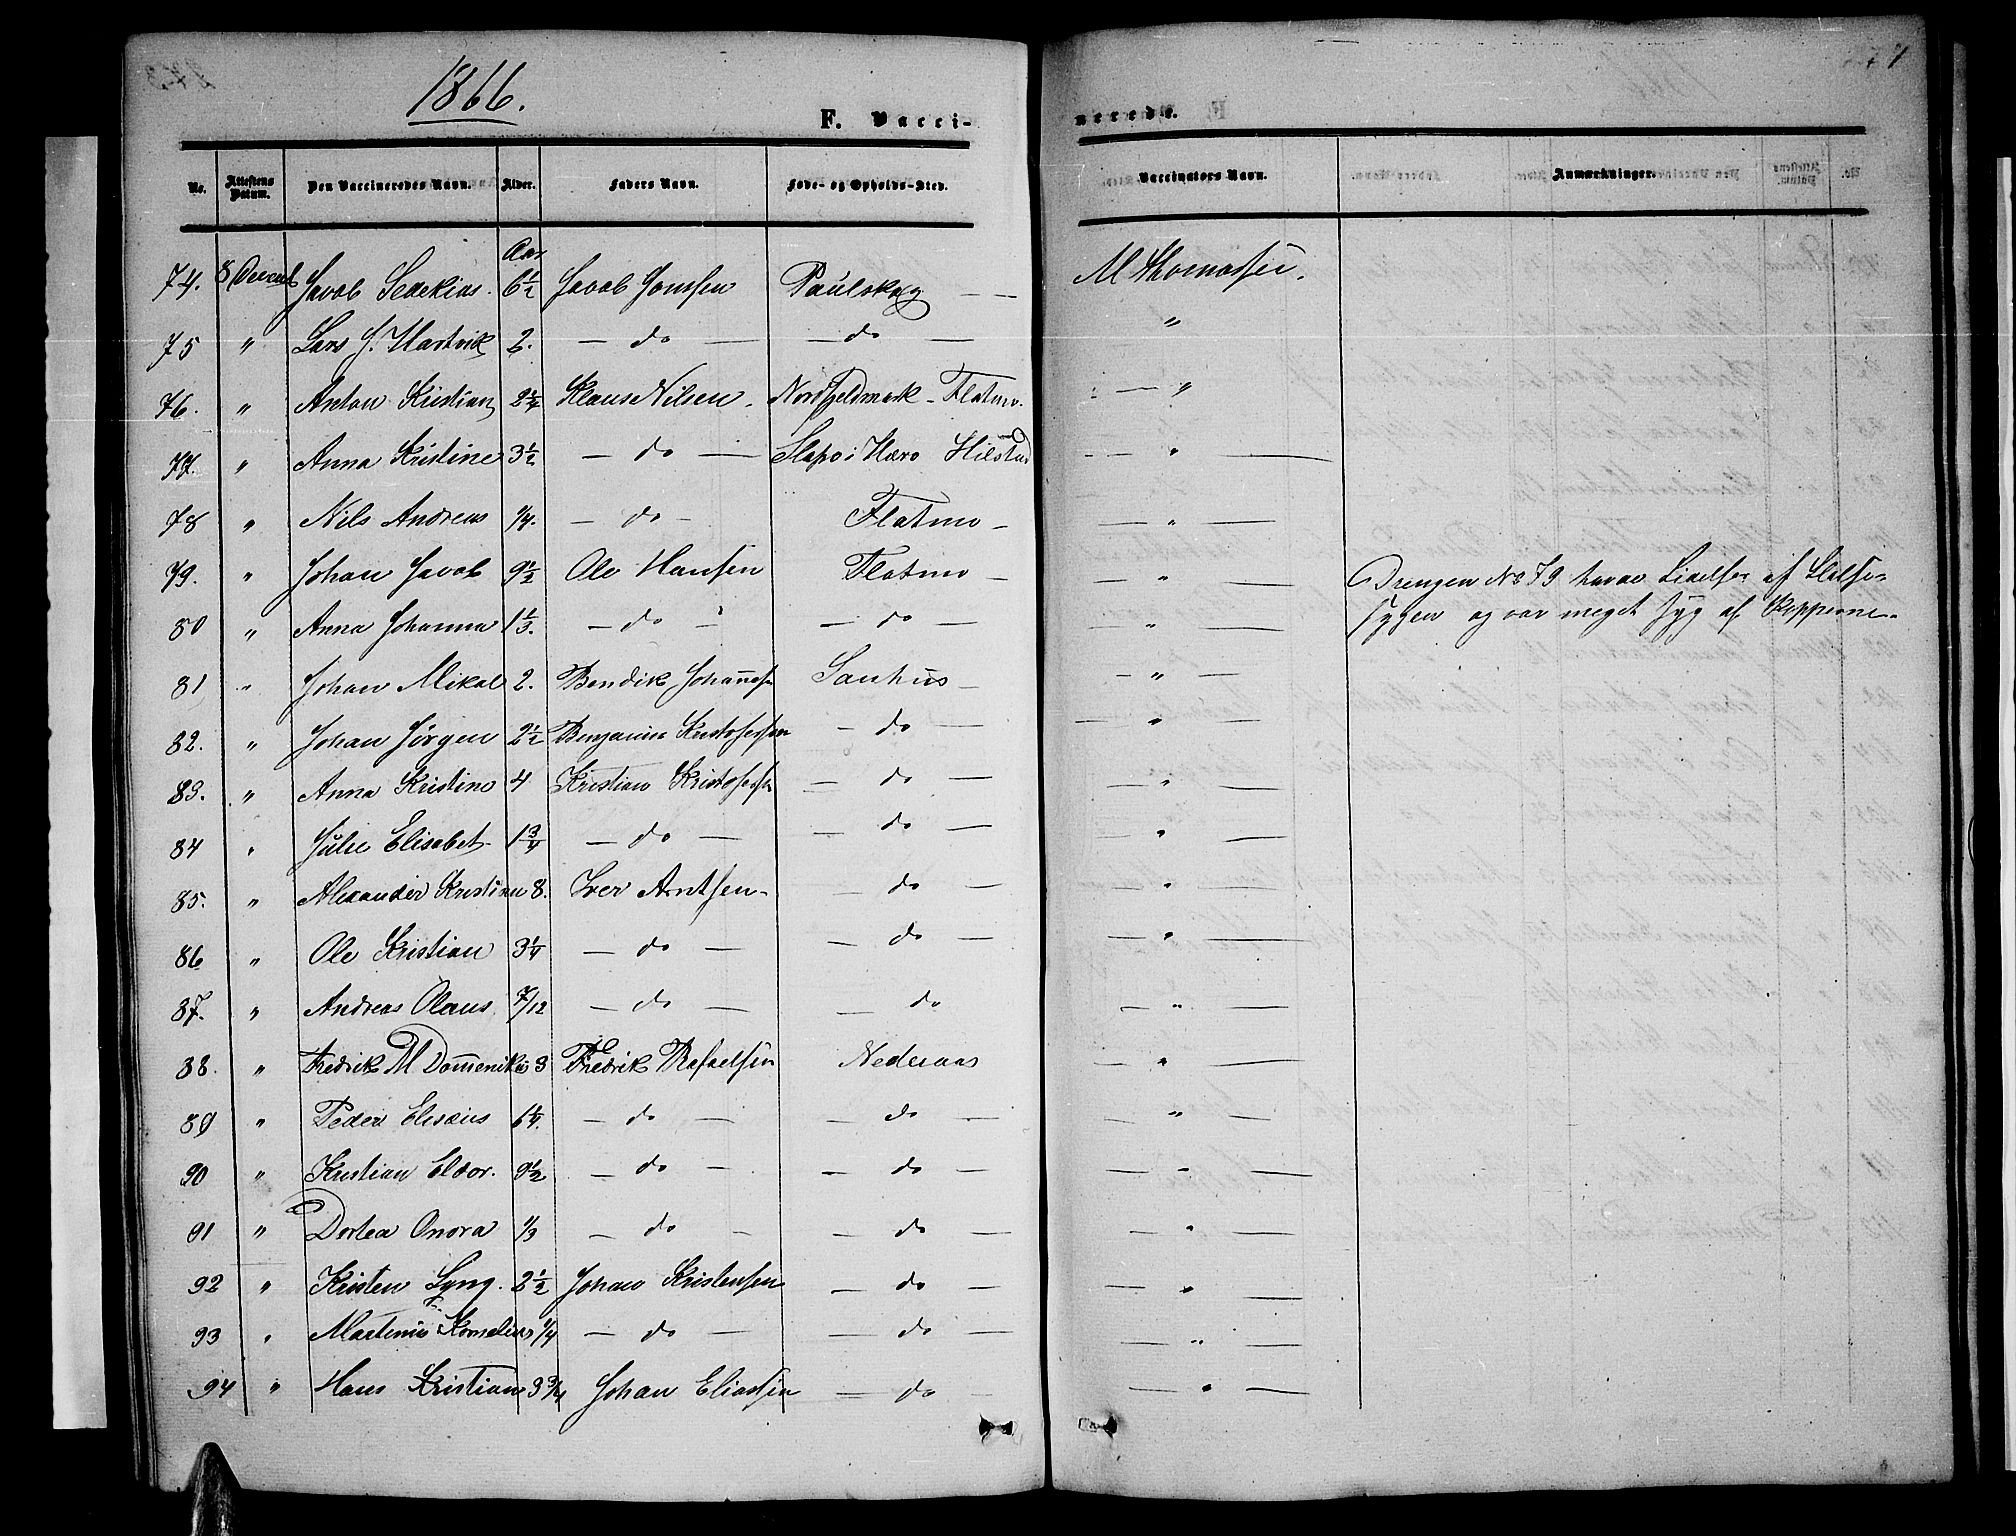 1866.
F. Vacci-
nerede.
No.
Attestens Datum.
Den Vaccineredes Navn.
Alder.
Faders Navn.
Føde- og Opholds-Sted.
Vaccinators Navn.
Anmærkninger.
Aar
74. 8 Decemb Jacob Sedekias. 6½ Jacob Jonssen Paulskag — — M Thomassen.
75 " Lars J. Hartvik 2. — do — — do — "
76. " Anton Kristian 2¾ Klaus Nilsen. Nordfjeldmark - Flatmo. — "
77. " Anna Kristine 3½ — do — i Hilstad — " —
78 " Nils Andreas ¼. — do — Flatmo — — " —
79. " Johan Jacob 9½ Ole Hansen Flatmo — — " — Drengen No 79 havde Lidelser af
sygen og var meget syg af Kopperne.
80 " Anna Johanna 1⅓. — do — — do — — " —
81 " Johan Mikal 2. Bendik Johannes Sanhus — — " —
82. " Johan Jørgen 2½ Benjamin Kristofersen — do — — " —
83. " Anna Kristine 4 Kristian Kristofers — do — — " —
84 " Julie Elisabet 1¾ — do — — do — — " —
85. " Alexander Kristian 8. Iver Arntsen — do — — " —
86 " Ole Kristian 3¼ — do — — do — — " —
87. " Andreas Olaus 7/12 — do — — do — " —
88. " Fredrik M Domenikus 3 Fredrik Rafaelsen Nederaas — " —
89 " Peder Elisæus 6¼. — do — — do — — " —
90 " Kristian Eldor. 9½ — do — — do — — " —
91 " Dortea Onora ⅓ — do — — do — — " —
92 " Kristen Lyng. 2½ Johan Kristensen — do — — " —
93 " Martinus Kornelius ¼ — do — — do — — " —
94 " Hans Kristian 3¾ Johan Eliassen — do — — " —